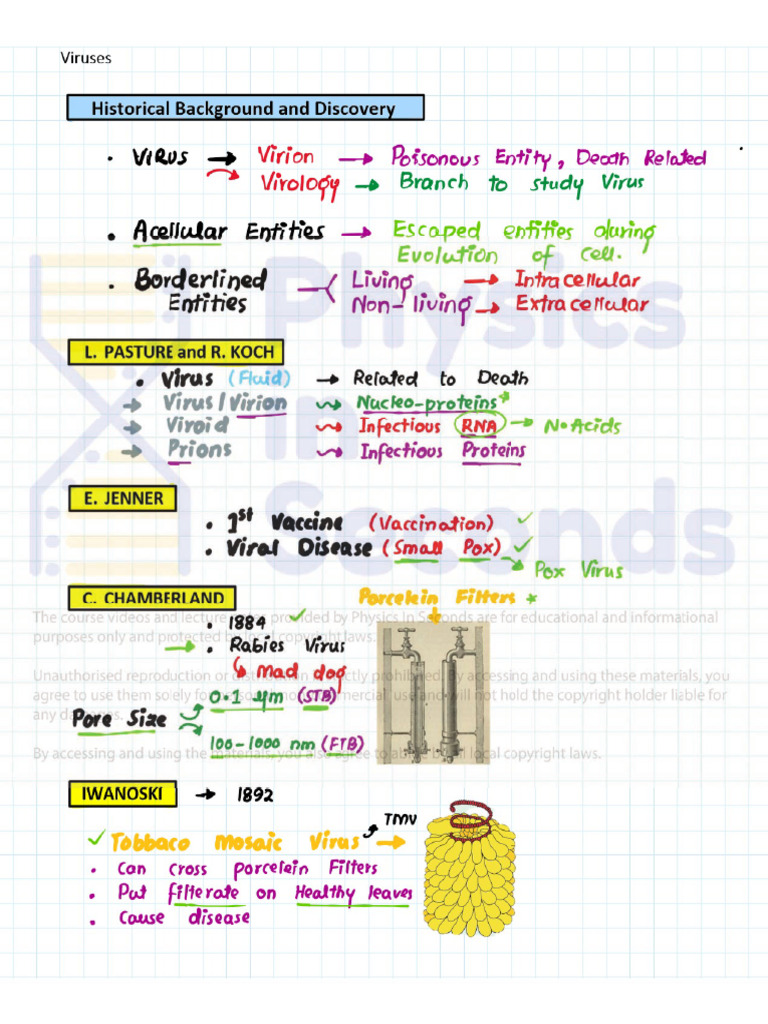 Viruses
Historical Background and Discovery
• VIRUS → Virion → Poisonous Entity, Death Related
→ Virology → Branch to study Virus
• Acellular Entities → Escaped entities during
Evolution of cell.
• Borderlined Living → Intracellular
Entities Non-living → Extracellular
L. PASTURE and R. KOCH
• Virus (Fluid) → Related to Death
→ Virus/Virion Nucleo-proteins*
→ Viroid Infectious RNA → N.Acids
→ Prions Infectious Proteins
E. JENNER
• 1st Vaccine (Vaccination) ✓
• Viral Disease (Small Pox) ✓
→ Pox Virus
C. CHAMBERLAND
Porcelein Filters *
The course videos and lecture provided by Physics In Seconds are for educational and informational
purposes only and protected by local copyright laws.
• 1884 ✓
→ • Rabies Virus
Mad dog
Unauthorised reproduction or distribution is strictly prohibited. By accessing and using these materials, you
agree to use them solely for commercial use and will not hold the copyright holder liable for
any damages.
Pore Size
0.1 µm (STB)
100-1000 nm (FTB)
By accessing and using the materials, you also agree to abide by all local copyright laws.
IWANOSKI → 1892
TMV
✓ Tobbaco Mosaic Virus →
• Can cross porcelein Filters
• Put filterate on Healthy leaves
• Cause disease
Physics
In
Seconds